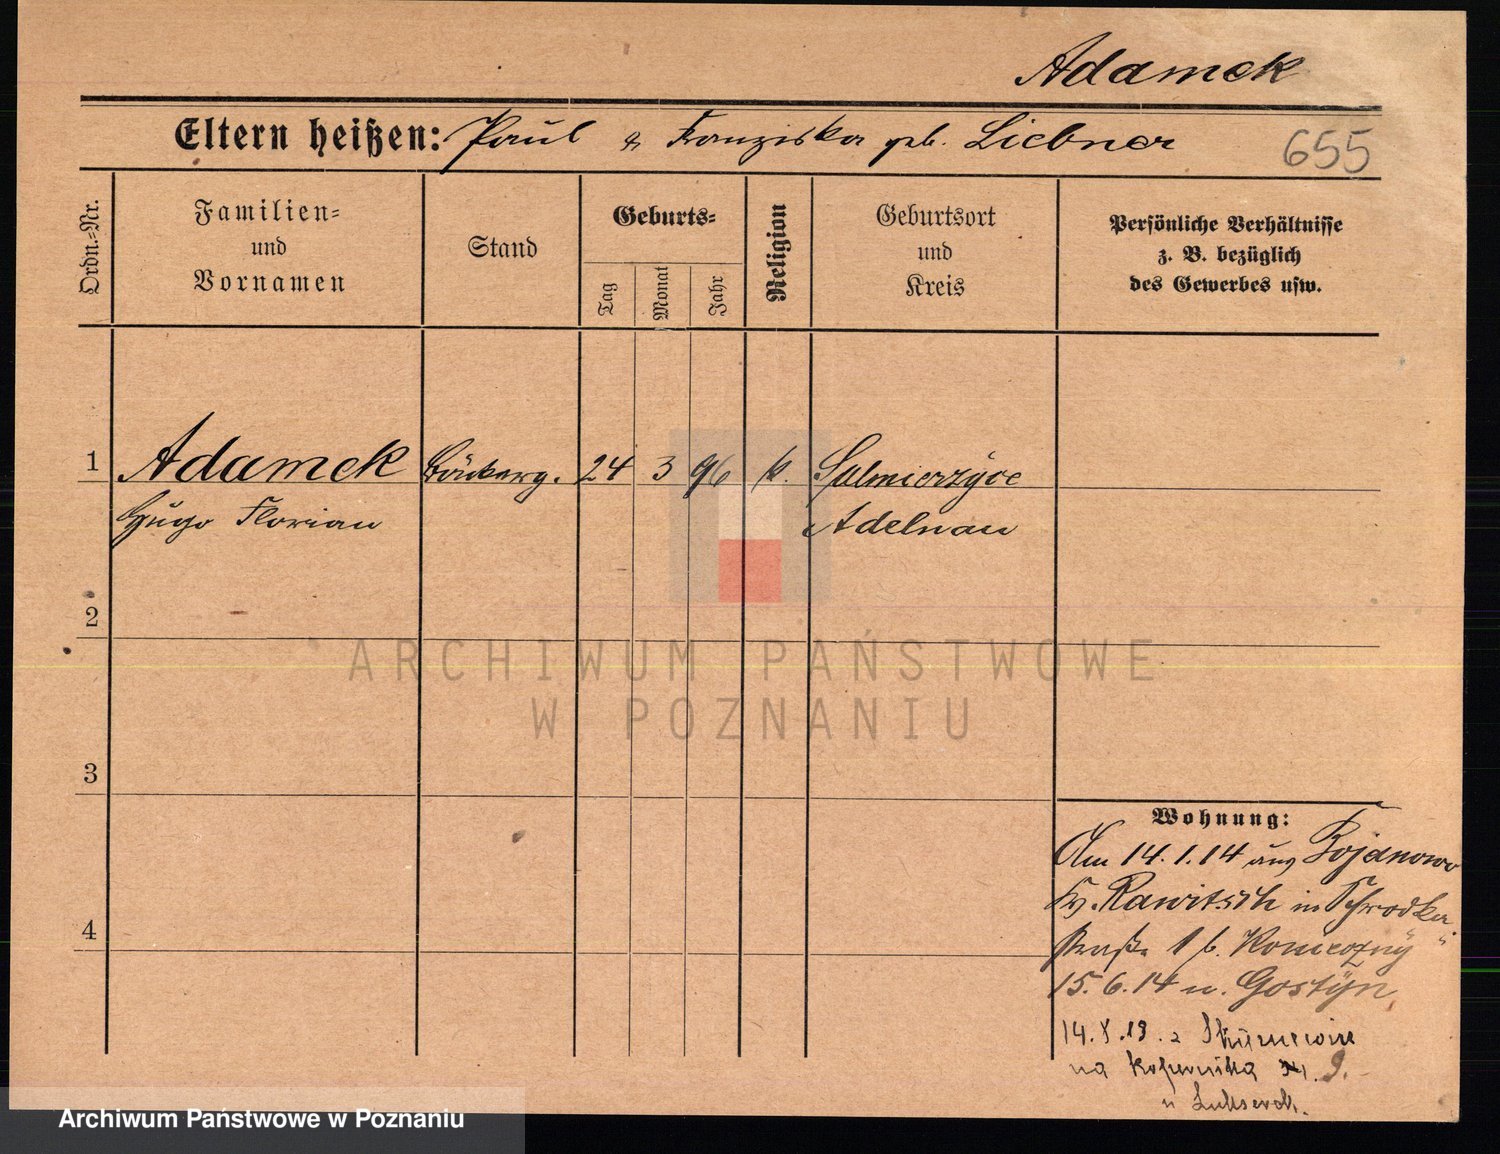 Adamek
Eltern heißen: Paul & Franziska geb. Liebner
655
Ordn.-Nr.
Familien-
und
Vornamen
Stand
Geburts-
Tag
Monat
Jahr
Religion
Geburtsort
und
Kreis
Persönliche Verhältnisse
z. B. bezüglich
des Gewerbes usw.
1 Adamek Bäckerg. 24 3 96 k. Sulmierzyce
Hugo Florian Adelnau
2
ARCHIWUM PAŃSTWOWE
W POZNANIU
3
Wohnung:
Am 14.1.14 aus Bojanowo
Kr. Rawitsch in Schrodka
4
straße 1 b. Konieczny
15.6.14 n. Gostyn
14.X.19. z
na Kopernika 9.
u
Archiwum Państwowe w Poznaniu